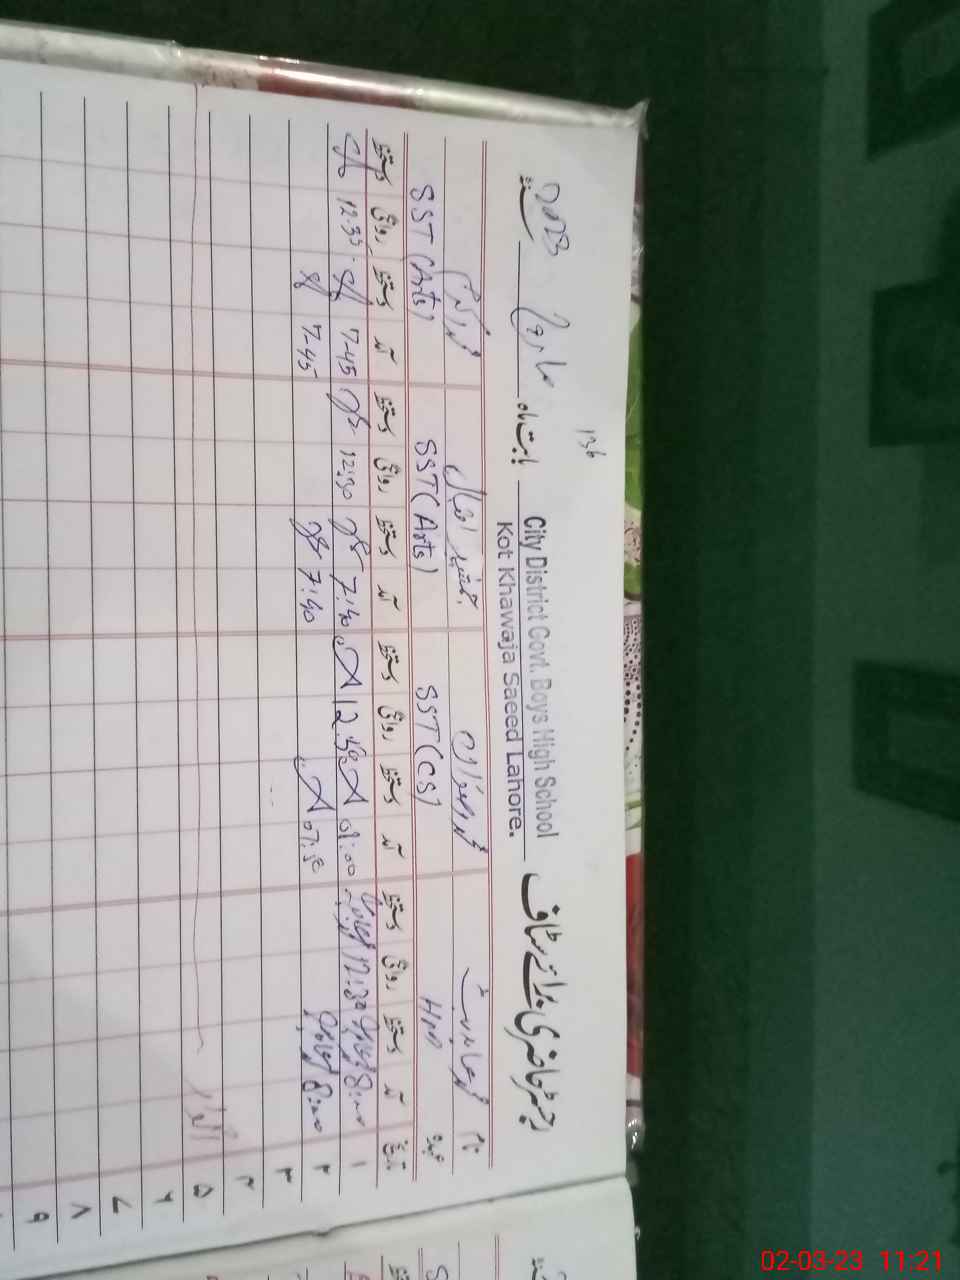 رجسٹر حاضری برائے سٹاف City District Govt. Boys High School بابت ماہ مارچ سنہ 2023
Kot Khawaja Saeed Lahore.
136
نام محمد عابد بٹ محمد رضوان محمد اکرم
عہدہ HM SST (CS) SST (Arts) SST (Arts)
تاریخ آمد دستخط روانگی دستخط آمد دستخط روانگی دستخط آمد دستخط روانگی دستخط آمد دستخط روانگی دستخط
۱ 8:00 12:30 08:00 12:30 7:40 12:30 7-45 12:33
۲ 8:00 07:50 7:40 7-45
۳
۴
۵ اتوار
۶
۷
۸
۹
02-03-23 11:21